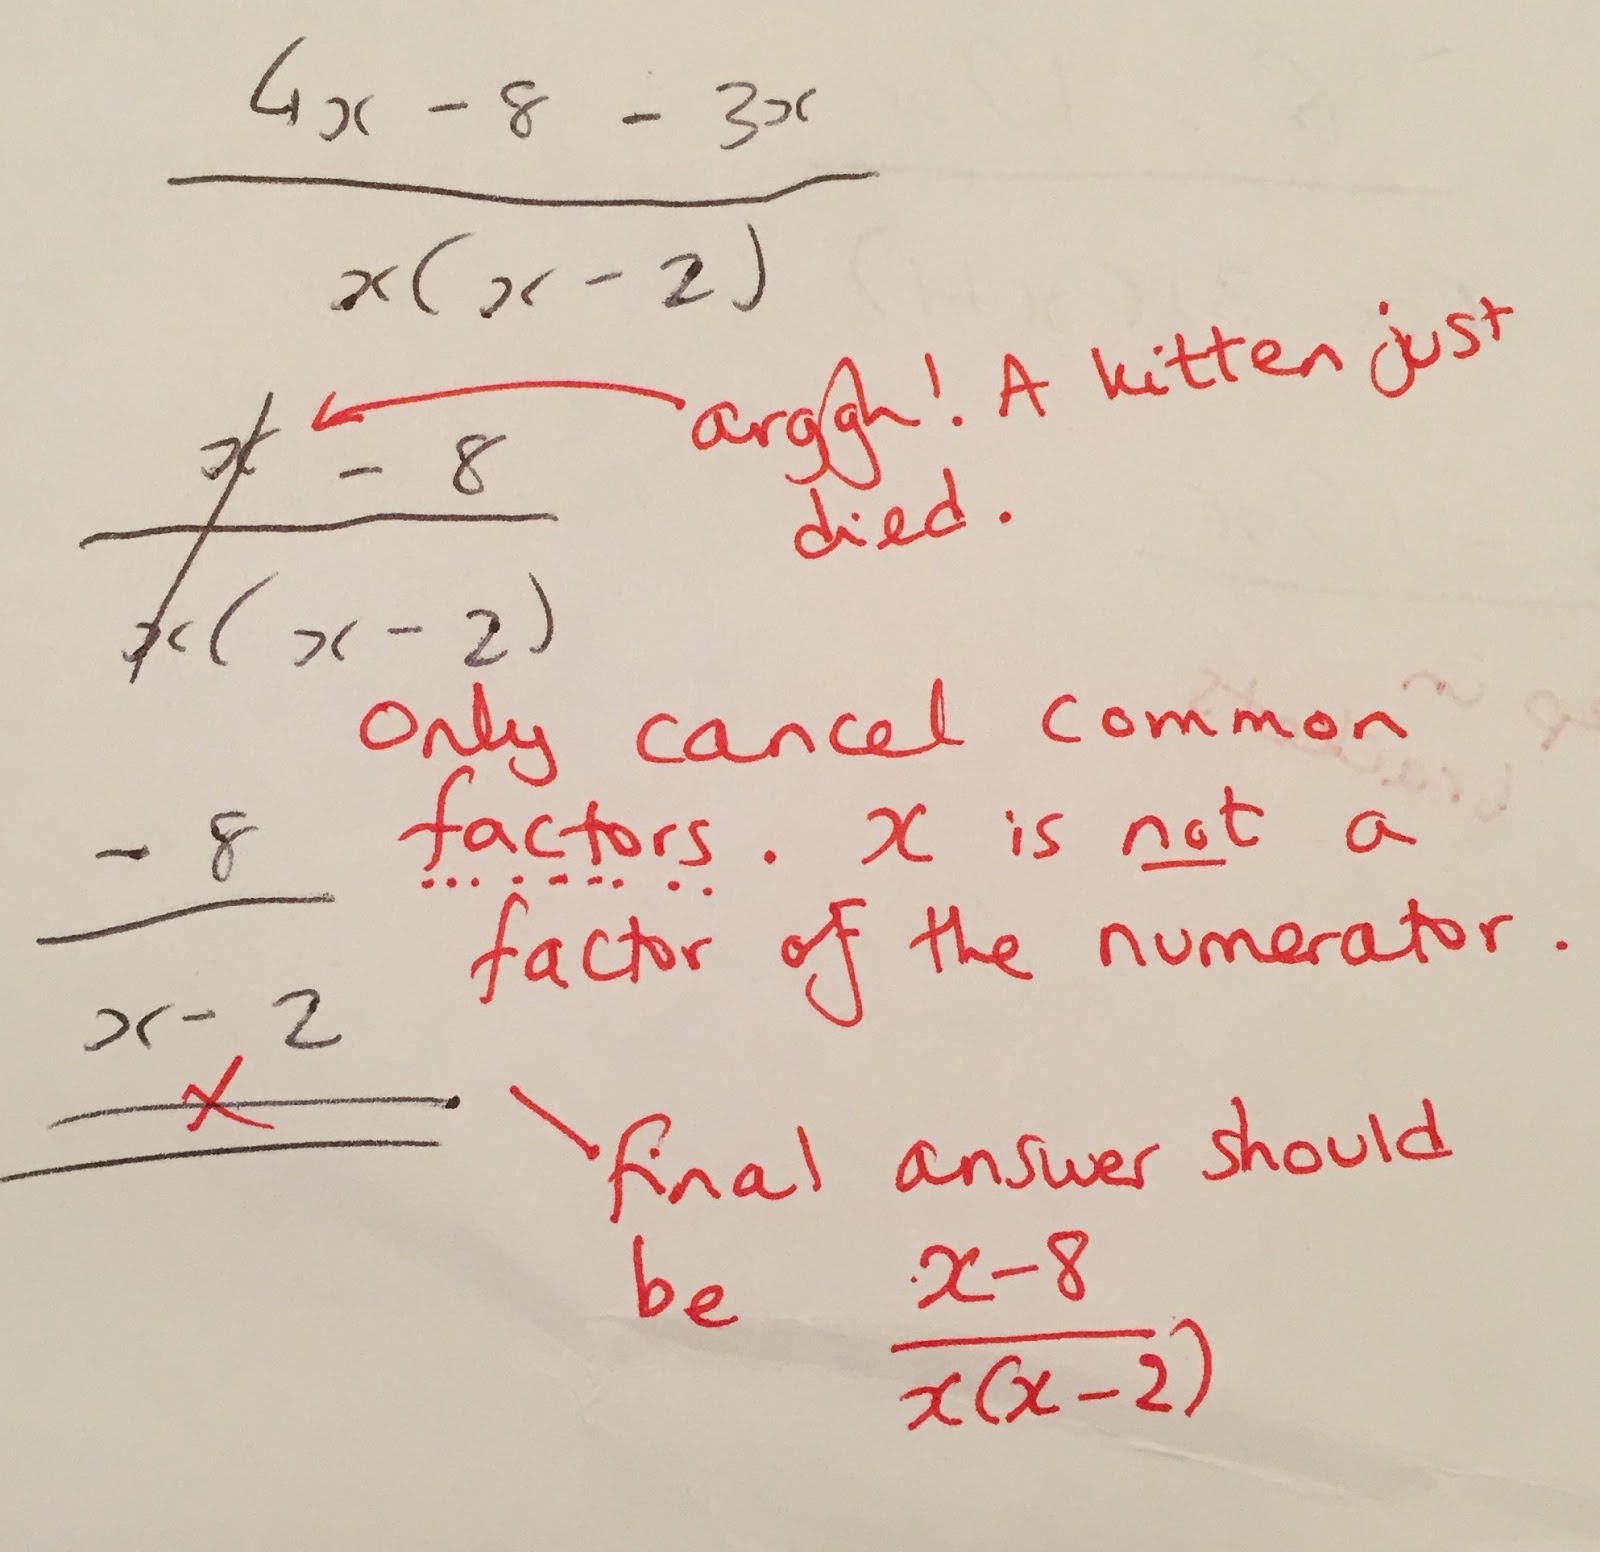 4x - 8 - 3x
x(x - 2)
arggh! A kitten just
x - 8
died.
x(x - 2)
only cancel common
- 8
factors. x is not a
factor of the numerator.
x - 2
x
final answer should
be x-8
x(x-2)